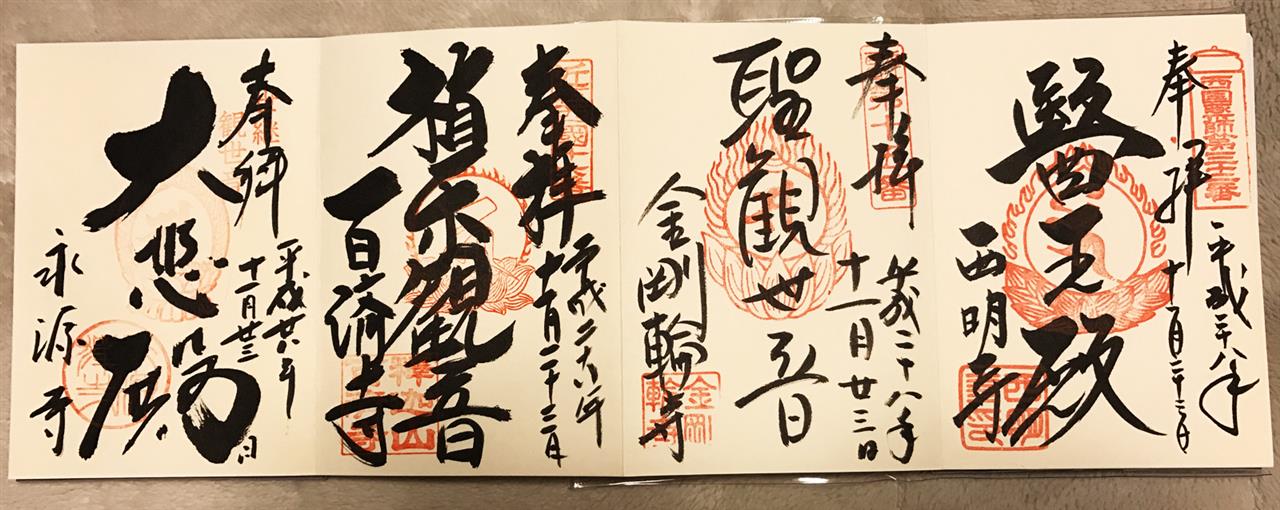 西國薬師第三十二番
奉拝
平成二十八年
十一月二十三日
醫王殿
西明寺
奉拝
平成二十八年
十一月廿三日
聖観世音
金剛輪寺
金剛輪寺
奉拝
平成二十八年
十一月二十三日
植木観音
百済寺
奉拝
平成廿八年
十一月廿三日
大悲殿
永源寺